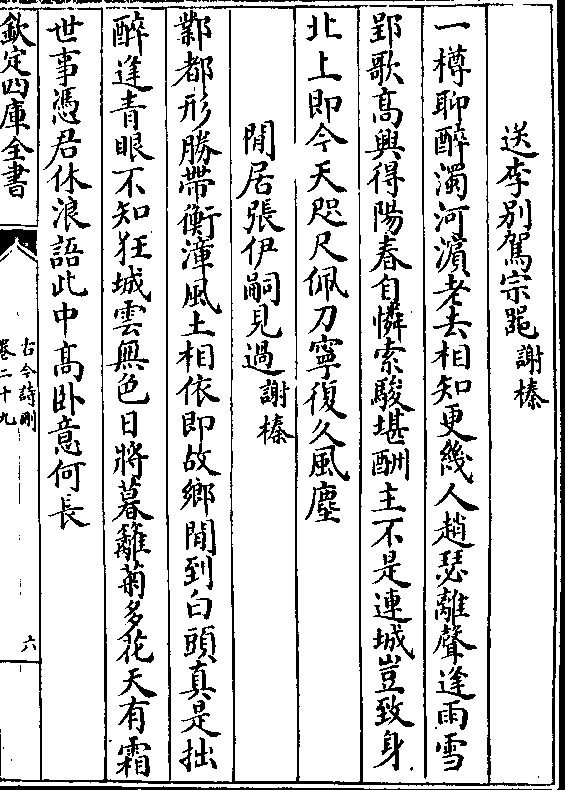 送李别駕宗 謝榛
一樽聊醉濁河濵老去相知更幾人趙瑟離聲逢雨雪
郢歌髙興得陽春自憐索駿堪酬主不是連城豈致身
北上即今天咫尺佩刀寧復久風塵
閒居張伊嗣見過 謝榛
鄴都形勝帶衡漳風土相依即故鄉閒到白頭真是拙
醉逢青眼不知狂城雲無色日將暮籬菊多花天有霜
世事憑君休浪語此中髙卧意何長
欽定四庫全書
古今詩刪
卷二十九
六